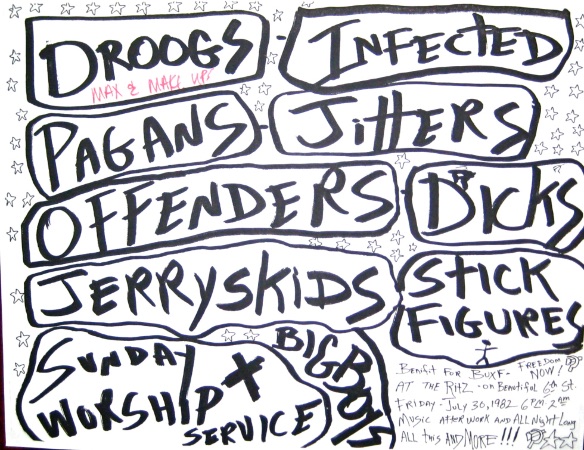 DROOGS
INFECTED
MAX & MAKE UPS
PAGANS
JITTERS
OFFENDERS
DICKS
JERRYSKIDS
STICK
FIGURES
SUNDAY
WORSHIP
SERVICE
+
BIGBOYS
BENEFIT FOR BUXF - FREEDOM
NOW!
AT THE RITZ - ON BEAUTIFUL 6th St.
FRIDAY - JULY 30, 1982 6PM 2AM
MUSIC AFTER WORK AND ALL NIGHT LONG
ALL THIS AND MORE!!!